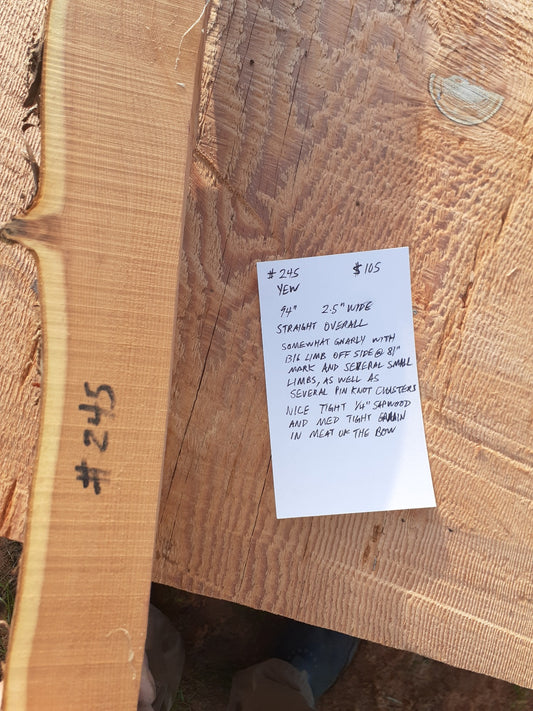 # 245 $105
YEW
94" 2.5" WIDE
STRAIGHT OVERALL
SOMEWHAT GNARLY WITH
BIG LIMB OFF SIDE @ 81"
MARK AND SEVERAL SMALL
LIMBS, AS WELL AS
SEVERAL PIN KNOT CLUSTERS
NICE TIGHT 1/4" SAPWOOD
AND MED TIGHT GRAIN
IN MEAT OF THE BOW
# 245